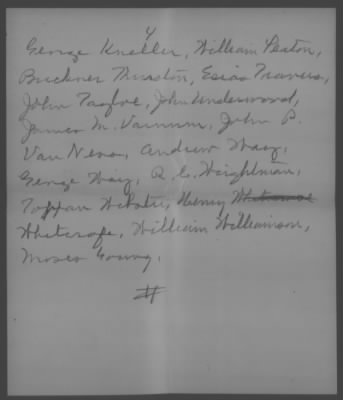 4
George Kneller, William Peaton,
Buckner Thurston, Esias Travers,
John Tayloe, John Underwood,
James M. Varnum, John P.
Van Ness, Andrew Way,
George Way, R. C. Weightman,
Toppan Webster, Henry
Whitcroft, William Williamson,
Moses Young.
#